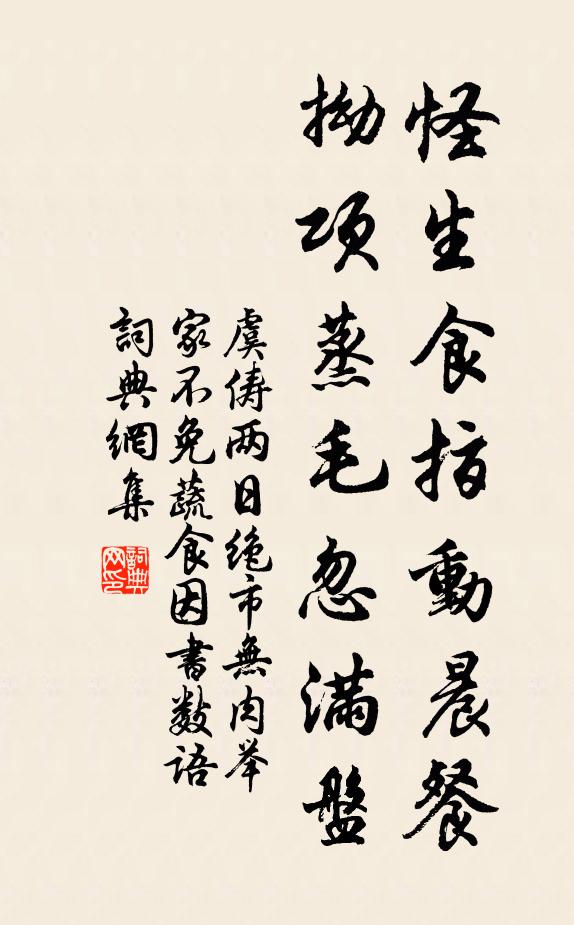 怪生食指動晨餐
拗項蒸毛忽滿盤
虞儔两日絶市無肉举
家不免蔬食因書数语
詞典網集
詞典
网印